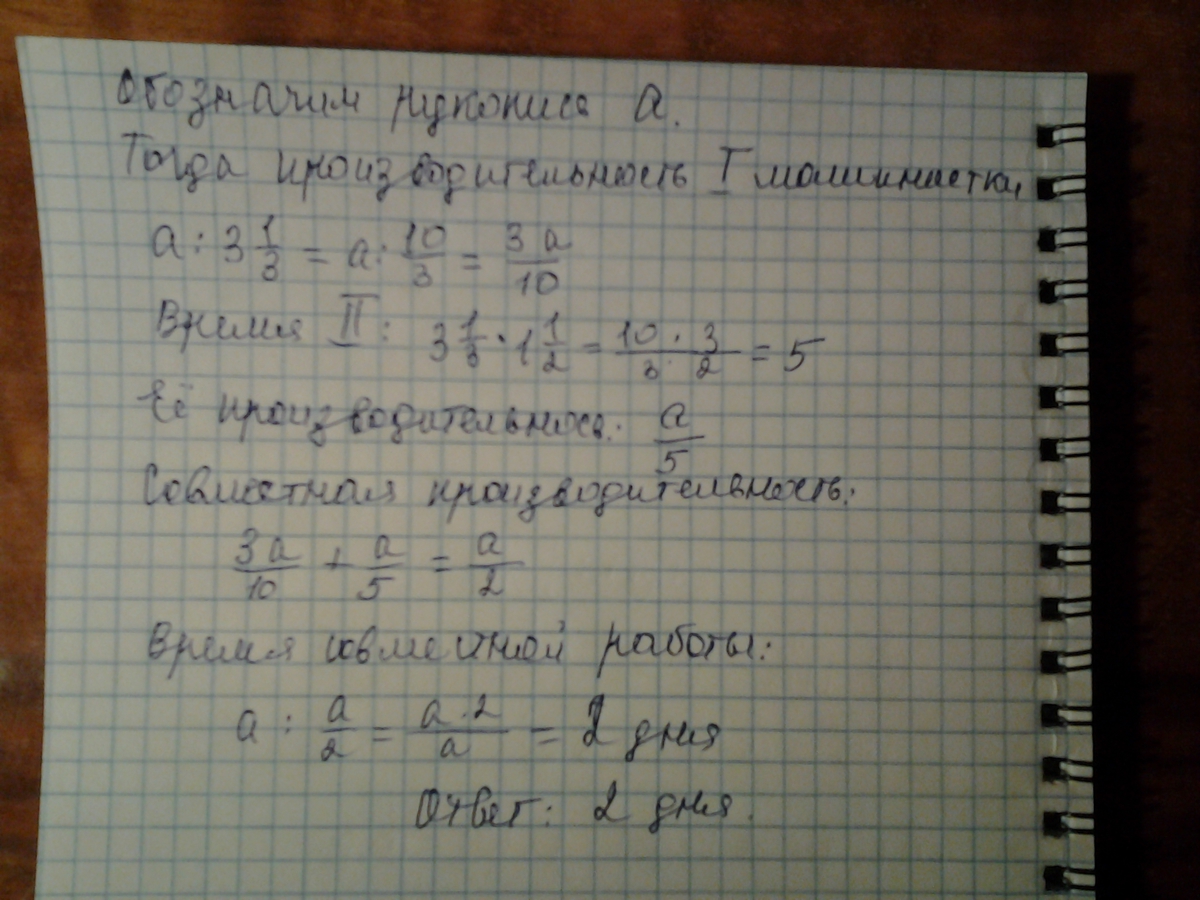 Обозначим рукопись a.
Тогда производительность I машинистки,
a : 3 1/3 = a : 10/3 = 3a/10
Время II: 3 1/3 · 1 1/2 = 10 · 3 / 3 · 2 = 5
Её производительнось: a/5
Совместная производительность:
3a/10 + a/5 = a/2
Время совместной работы:
a : a/2 = a · 2 / a = 2 дня
Ответ: 2 дня.